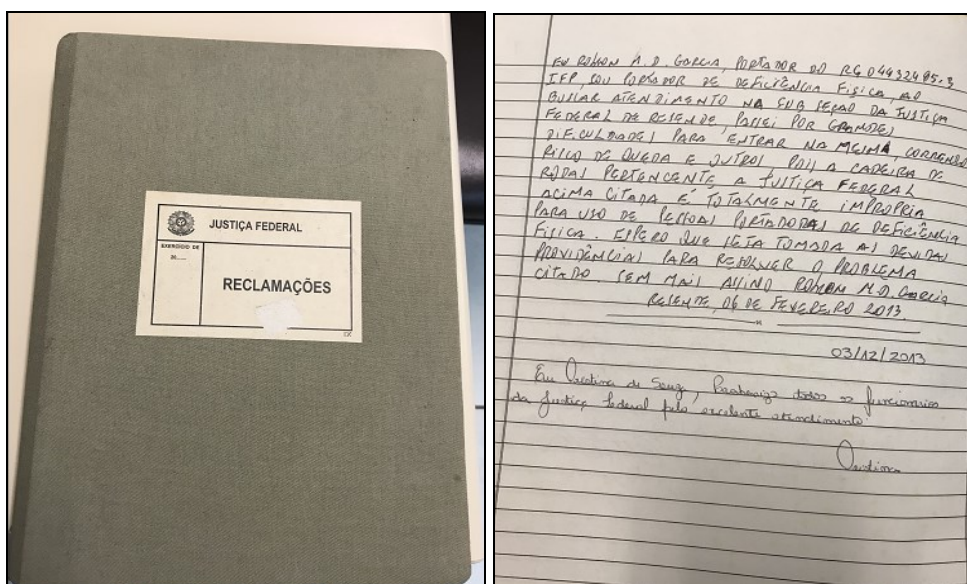 JUSTIÇA FEDERAL
EXERCÍCIO DE
RECLAMAÇÕES
EU M. D. GARCIA, PORTADOR DO RG 04432495-3
IFP, SOU PORTADOR DE DEFICIÊNCIA FISICA, AO
BUSCAR ATENDIMENTO NA SUB SEÇÃO DA JUSTIÇA
FEDERAL DE RESENDE, PASSEI POR GRANDES
DIFICULDADES PARA ENTRAR NA MESMA, CORRENDO
RISCO DE QUEDA E OUTROS POIS A CADEIRA DE
RODAS PERTENCENTE A JUSTIÇA FEDERAL
ACIMA CITADA É TOTALMENTE IMPROPRIA
PARA USO DE PESSOAS PORTADORAS DE DEFICIÊNCIA
FISICA. ESPERO QUE SEJA TOMADA AS DEVIDAS
PROVIDÊNCIAS PARA RESOLVER O PROBLEMA
CITADO. SEM MAIS ASSINO M.D. Garcia
RESENDE, 06 DE FEVEREIRO 2013.
03/12/2013
Eu de Souza, todos os funcionarios
da Justiça Federal pelo excelente atendimento.